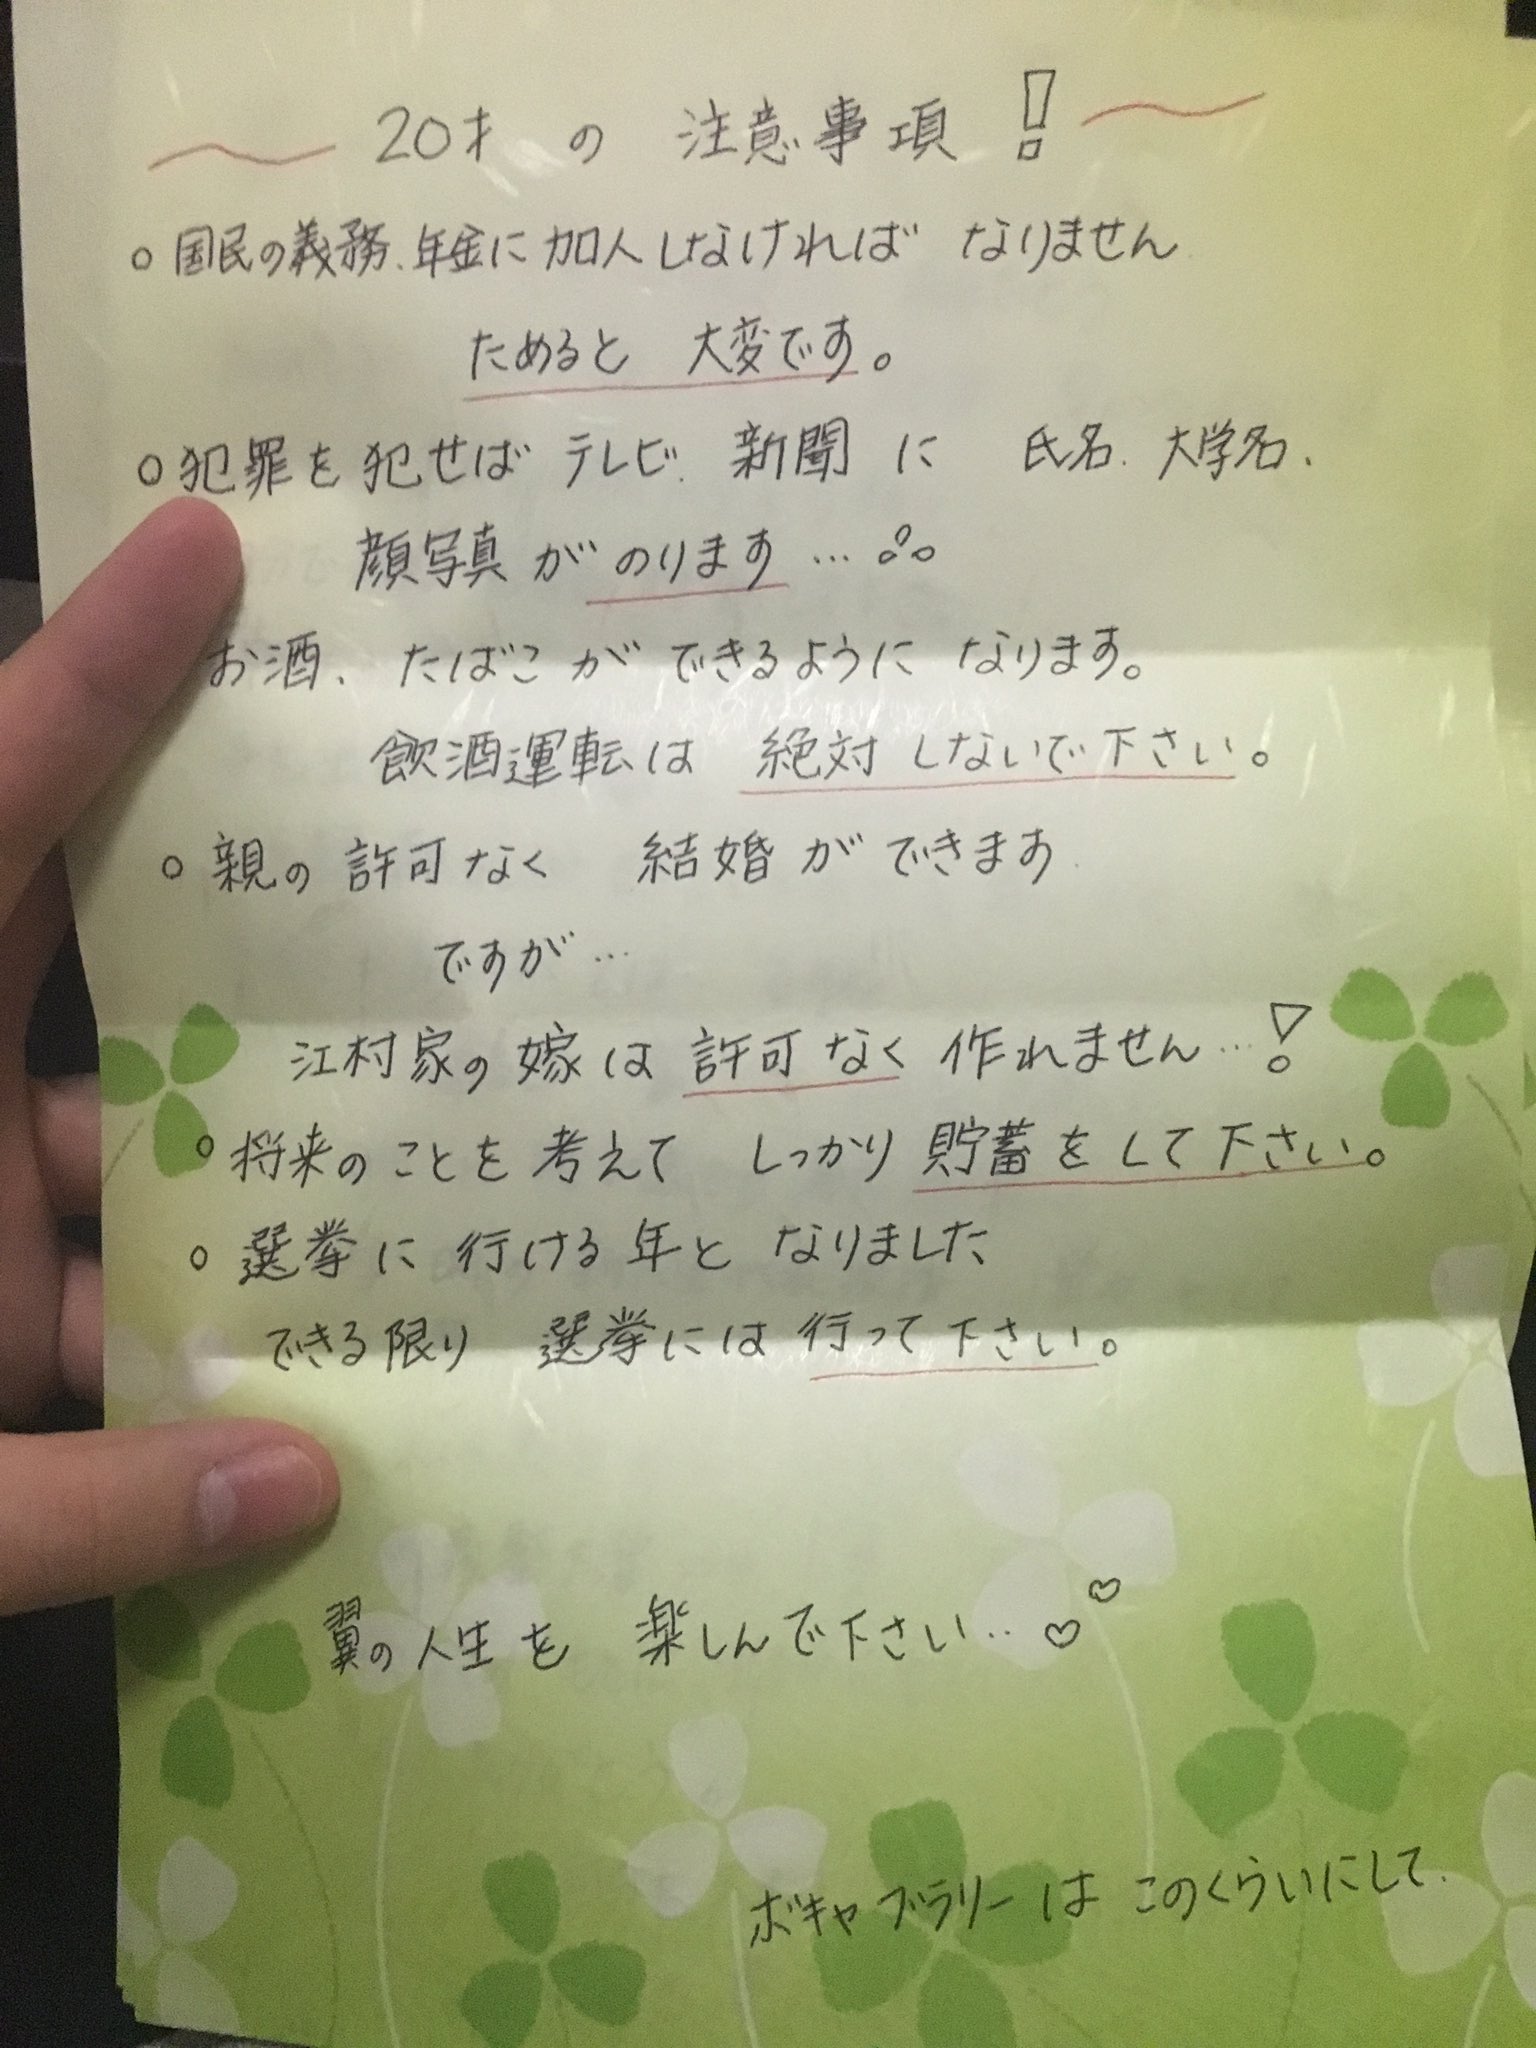 20才の注意事項!
○国民の義務、年金に加入しなければなりません
ためると大変です。
○犯罪を犯せばテレビ、新聞に氏名、大学名、
顔写真がのります…
お酒、たばこができるようになります。
飲酒運転は絶対しないで下さい。
○親の許可なく結婚ができます
ですが…
江村家の嫁は許可なく作れません…!
○将来のことを考えてしっかり貯蓄をして下さい。
○選挙に行ける年となりました
できる限り選挙には行って下さい。
翼の人生を楽しんで下さい…♡♡
ボキャブラリーはこのくらいにして.